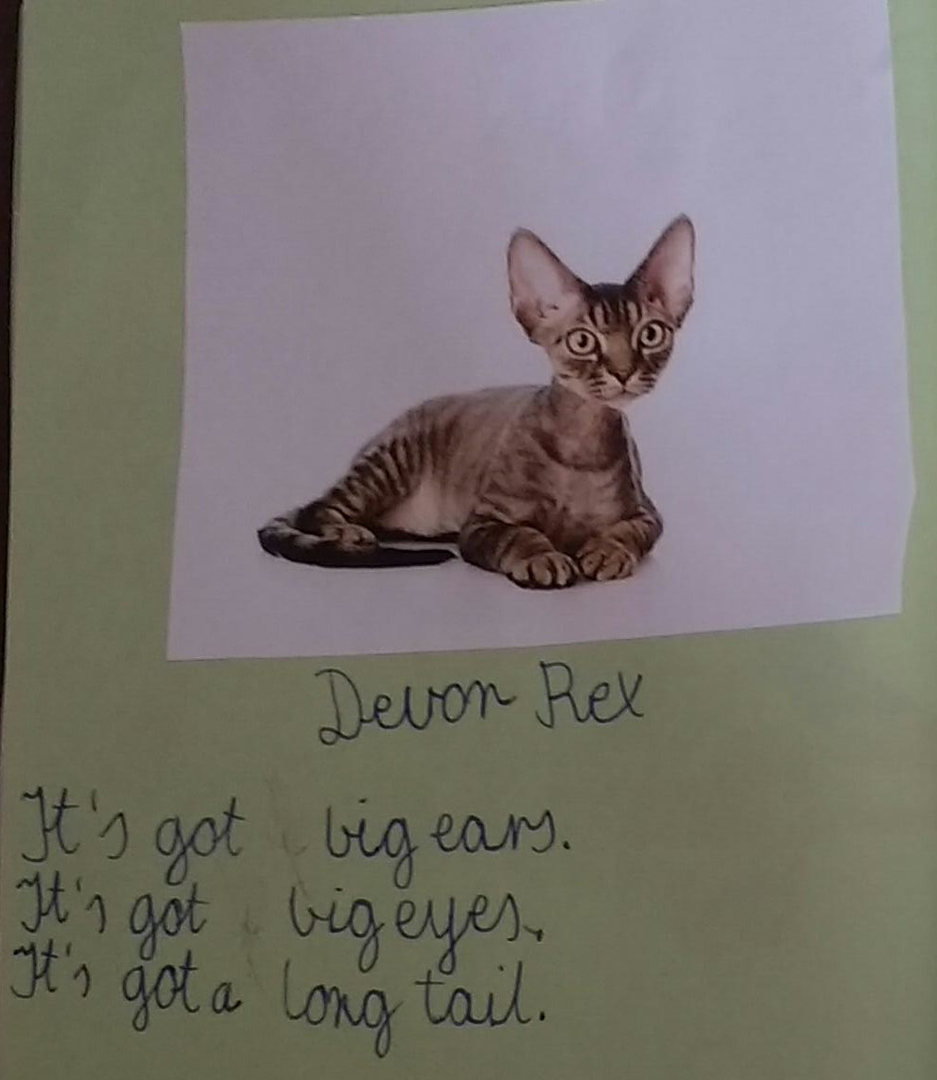 Devon Rex
It's got big ears.
It's got big eyes.
It's got a long tail.